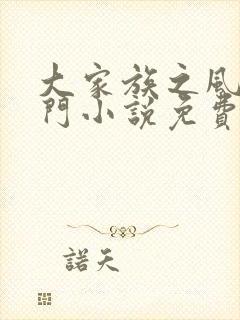 大家族之風
門小說免費
諾天